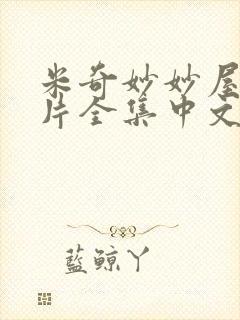 米奇妙妙屋
片全集中文
藍鲸丫